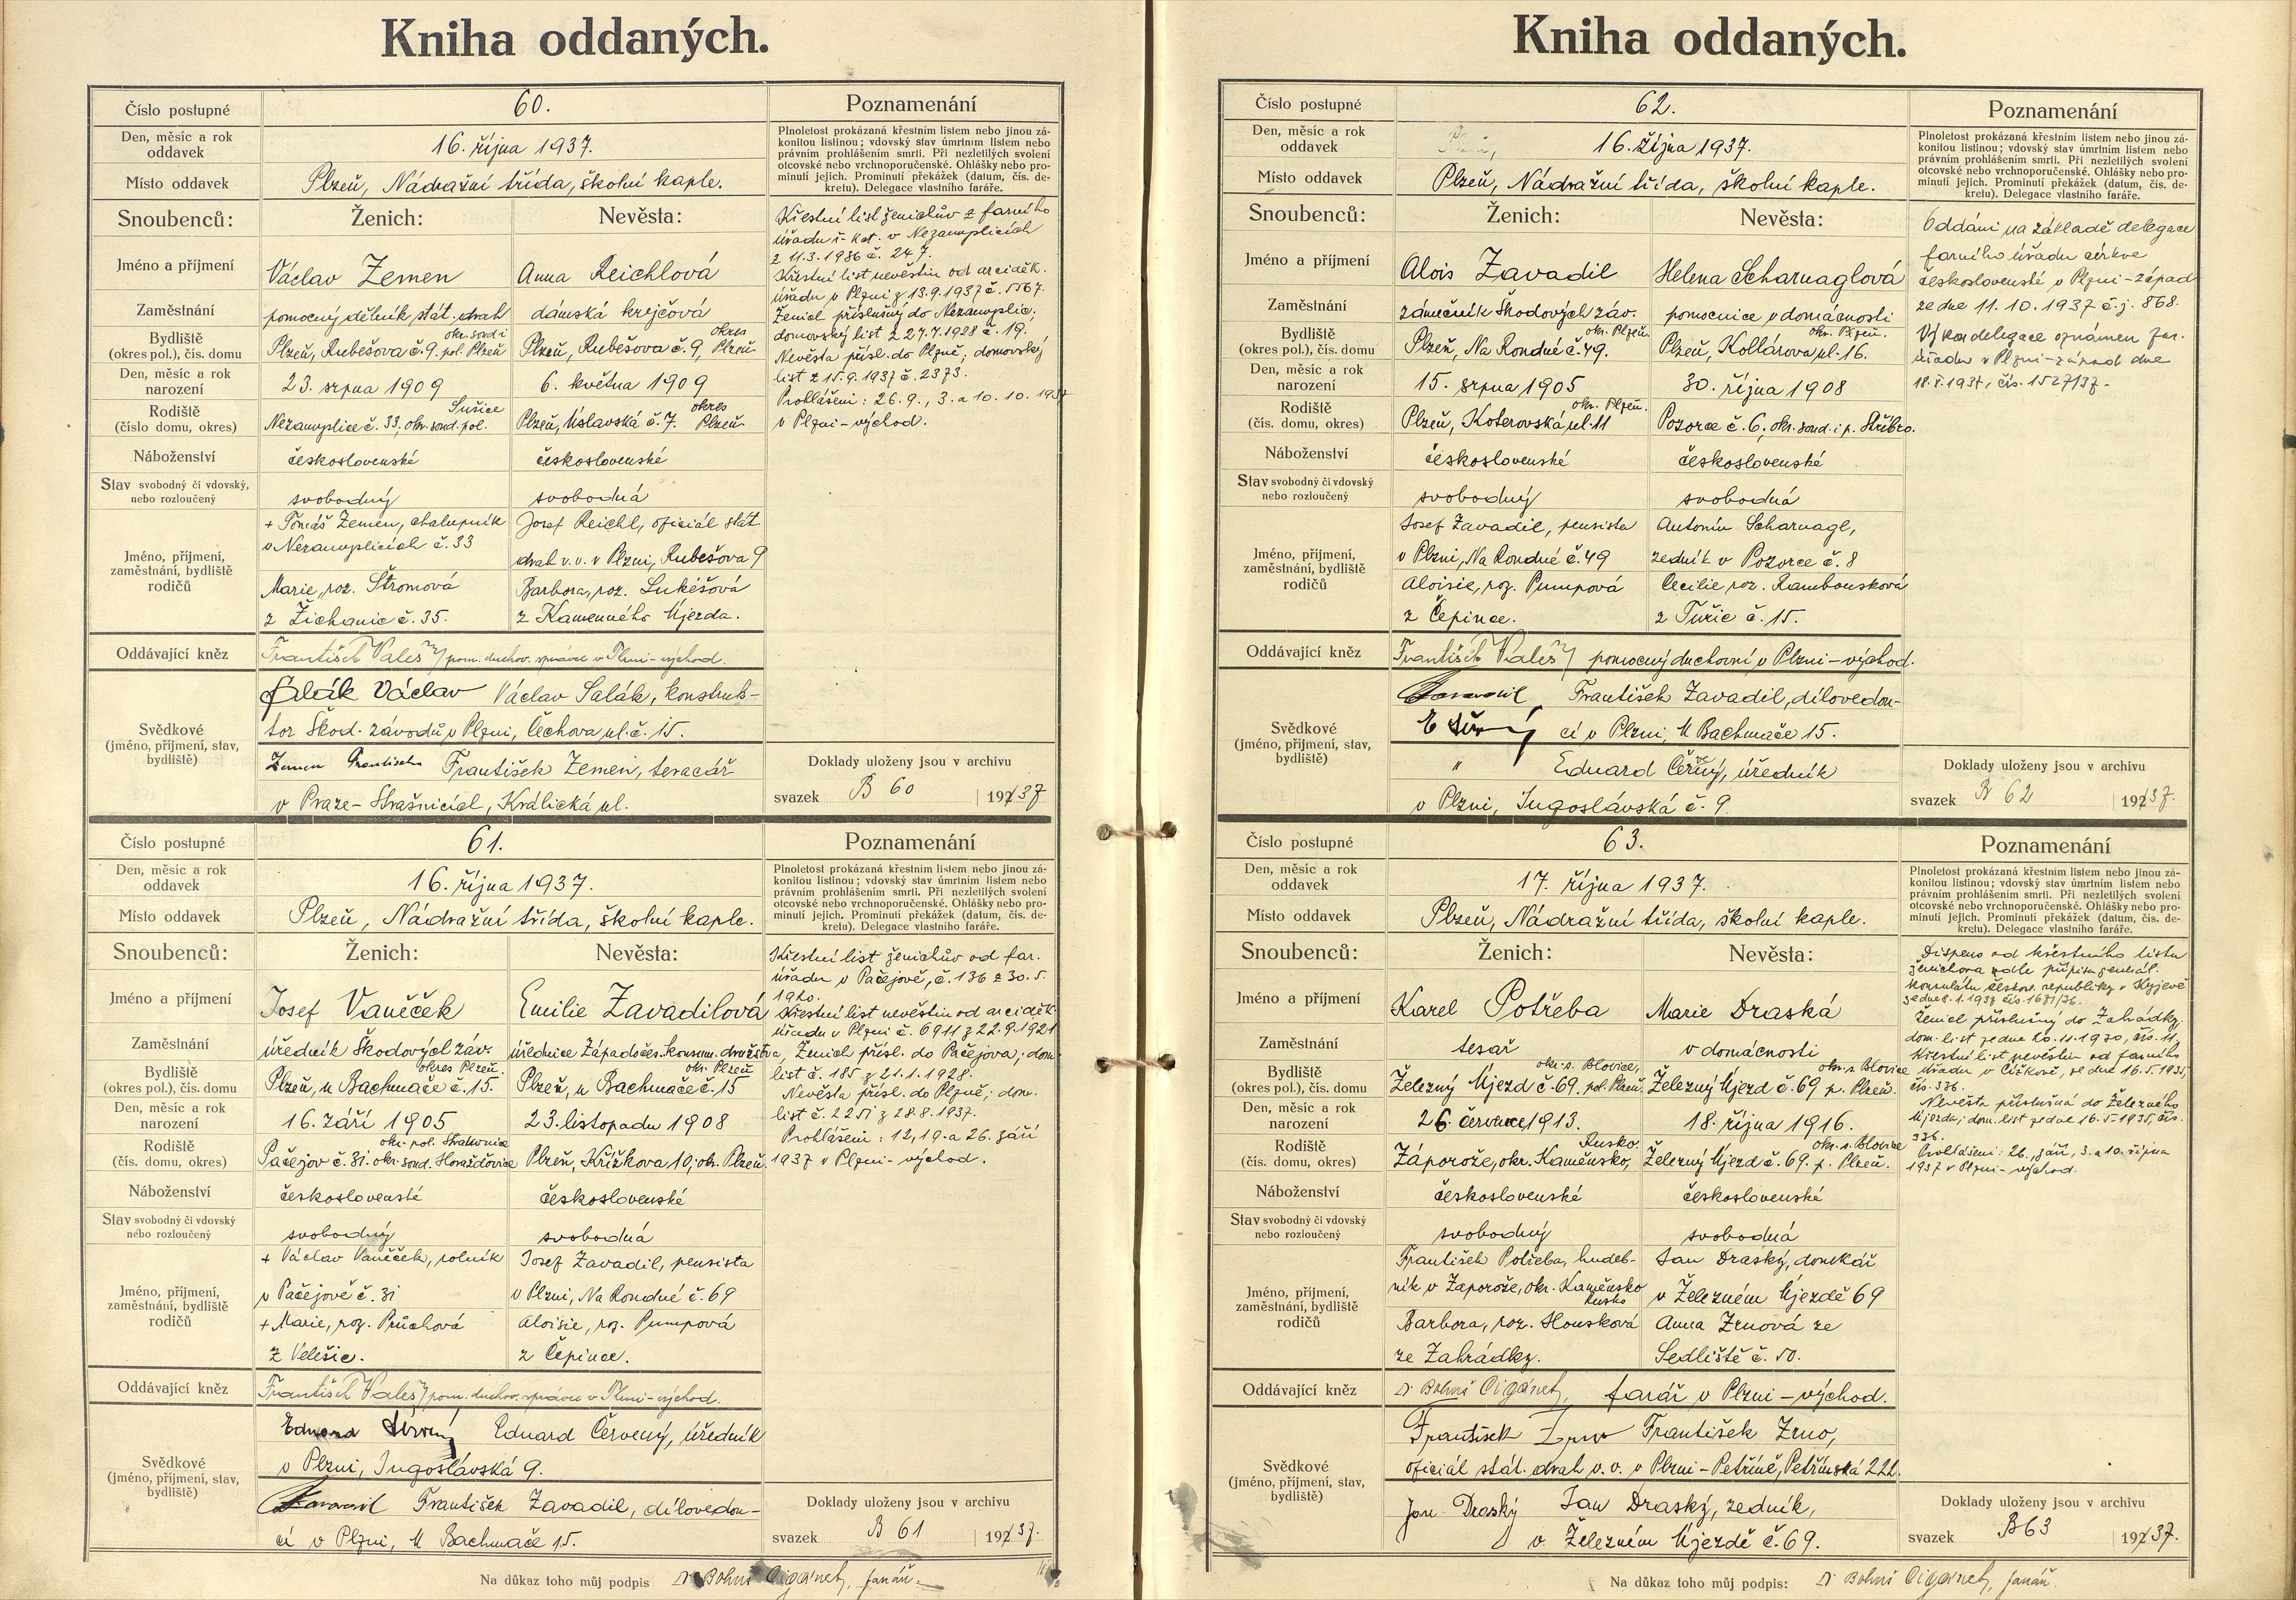 Kniha oddaných.
Číslo postupné 60. Poznamenání
Den, měsíc a rok oddavek 16. října 1937.
Místo oddavek Plzeň, Nádražní třída, školní kaple.
Plnoletost prokázaná křestním listem nebo jinou zá-
konitou listinou; vdovský stav úmrtním listem nebo
právním prohlášením smrti. Při nezletilých svolení
otcovské nebo vrchnoporučenské. Ohlášky nebo pro-
minutí jejich. Prominutí překážek (datum, čís. de-
kretu). Delegace vlastního faráře.
Snoubenců: Ženich: Nevěsta:
Jméno a příjmení Václav Zemen Anna Reichlová
Zaměstnání pomocný dělník stát. drah dámská krejčová
Bydliště (okres pol.), čís. domu Plzeň, Rubešova č. 9. okr. soud. i pol. Plzeň Plzeň, Rubešova č. 9, okres Plzeň.
Den, měsíc a rok narození 23. srpna 1909 6. května 1909
Rodiště (číslo domu, okres) Nezamyslice č. 33, okr. soud. pol. Sušice Plzeň, Úslavská č. 7. okres Plzeň.
Náboženství československé československé
Stav svobodný či vdovský, nebo rozloučený svobodný svobodná
Jméno, příjmení, zaměstnání, bydliště rodičů
+ Tomáš Zemen, chalupník
v Nezamyslicích č. 33
Marie, roz. Štromová
z Žichovic č. 35.
Josef Reichl, oficiál stát
drah v.v. v Plzni, Rubešova 9
Barbora, roz. Lukešová
z Kamenného Újezda.
Křestní list ženichův z farního
úřadu ř.-kat. v Nezamyslicích
z 11.3.1936 č. 247.
Křestní list nevěstin od arciděk.
úřadu v Plzni z 13.9.1937 č. 5567.
Ženich příslušný do Nezamyslic,
domovský list z 27.7.1928 č. 19.
Nevěsta přísl. do Plzně; domovský
list z 15.9.1937 č. 2373.
Prohlášeni: 26.9., 3. a 10.10.1937
v Plzni-východ.
Oddávající kněz František Valeš, pom. duchov. správce v Plzni-východ.
Svědkové (jméno, příjmení, stav, bydliště)
Salák Václav Václav Salák, konstruk-
tor Škod. závodů v Plzni, Čechova ul. č. 15.
Zemen František František Zemen, teracář
v Praze-Strašnicích, Králická ul.
Doklady uloženy jsou v archivu
svazek B 60 1937
Číslo postupné 61. Poznamenání
Den, měsíc a rok oddavek 16. října 1937.
Místo oddavek Plzeň, Nádražní třída, školní kaple.
Plnoletost prokázaná křestním listem nebo jinou zá-
konitou listinou; vdovský stav úmrtním listem nebo
právním prohlášením smrti. Při nezletilých svolení
otcovské nebo vrchnoporučenské. Ohlášky nebo pro-
minutí jejich. Prominutí překážek (datum, čís. de-
kretu). Delegace vlastního faráře.
Snoubenců: Ženich: Nevěsta:
Jméno a příjmení Josef Vaněček Emilie Zavadilová
Zaměstnání úředník Škodových záv. úřednice Západočes. konsum. družstva
Bydliště (okres pol.), čís. domu Plzeň, u Bachmače č. 15. okres Plzeň. Plzeň, u Bachmače č. 15 okr. Plzeň
Den, měsíc a rok narození 16. září 1905 23. listopadu 1908
Rodiště (čís. domu, okres) Pačejov č. 31. okr. soud. Horažďovice okr. pol. Strakonice Plzeň, Křížkova 10, okr. Plzeň.
Náboženství československé československé
Stav svobodný či vdovský nebo rozloučený svobodný svobodná
Jméno, příjmení, zaměstnání, bydliště rodičů
+ Václav Vaněček, rolník
v Pačejově č. 31
+ Marie, roz. Průchová
z Velešic.
Josef Zavadil, pensista
v Plzni, Na Rondné č. 69
Aloisie, roz. Pumpová
z Čepince.
Křestní list ženichův od far.
úřadu v Pačejově, č. 136 z 30.5.
1920.
Křestní list nevěstin od arciděk.
úřadu v Plzni č. 6911 z 22.9.1921
Ženich přísl. do Pačejova; dom.
list č. 185 z 21.1.1928.
Nevěsta přísl. do Plzně; dom.
list č. 2251 z 28.8.1937.
Prohlášeni: 12, 19. a 26. září
1937 v Plzni-východ.
Oddávající kněz František Valeš, pom. duchov. správce v Plzni-východ.
Svědkové (jméno, příjmení, stav, bydliště)
Eduard Červený Eduard Červený, úředník
v Plzni, Jugoslávská 9.
Zavadil František Zavadil, dílovedou-
cí v Plzni, U Bachmače 15.
Doklady uloženy jsou v archivu
svazek B 61 1937.
Na důkaz toho můj podpis Dr Bohuš Cigánek, farář.
Kniha oddaných.
Číslo postupné 62. Poznamenání
Den, měsíc a rok oddavek 16. října 1937.
Místo oddavek Plzeň, Nádražní třída, školní kaple.
Plnoletost prokázaná křestním listem nebo jinou zá-
konitou listinou; vdovský stav úmrtním listem nebo
právním prohlášením smrti. Při nezletilých svolení
otcovské nebo vrchnoporučenské. Ohlášky nebo pro-
minutí jejich. Prominutí překážek (datum, čís. de-
kretu). Delegace vlastního faráře.
Snoubenců: Ženich: Nevěsta:
Jméno a příjmení Alois Zavadil Helena Scharnaglová
Zaměstnání zámečník Škodových záv. pomocnice v domácnosti
Bydliště (okres pol.), čís. domu Plzeň, Na Rondné č. 49. okr. Plzeň Plzeň, Kollárova ul. 16. okr. Plzeň.
Den, měsíc a rok narození 15. srpna 1905 30. října 1908
Rodiště (čís. domu, okres) Plzeň, Koterovská ul. 11 okr. Plzeň. Pozorce č. 6, okr. soud. i p. Stříbro.
Náboženství československé československé
Stav svobodný či vdovský nebo rozloučený svobodný svobodná
Jméno, příjmení, zaměstnání, bydliště rodičů
Josef Zavadil, pensista
v Plzni, Na Rondné č. 49
Aloisie, roz. Pumpová
z Čepince.
Antonín Scharnagl,
zedník v Pozorce č. 8
Cecilie roz. Rambousková
z Tuřic č. 15.
Oddáni na základě delegace
farního úřadu církve
československé v Plzni-západ
ze dne 11.10.1937 č.j. 868.
Výkon delegace oznámen far.
úřadu v Plzni-západ dne
18.X.1937, čís. 1527/37.
Oddávající kněz František Valeš, pomocný duchovní v Plzni-východ.
Svědkové (jméno, příjmení, stav, bydliště)
Zavadil František Zavadil, dílovedou-
cí v Plzni, U Bachmače 15.
" Eduard Červený, úředník
v Plzni, Jugoslávská č. 9.
Doklady uloženy jsou v archivu
svazek B 62 1937.
Číslo postupné 63. Poznamenání
Den, měsíc a rok oddavek 17. října 1937.
Místo oddavek Plzeň, Nádražní třída, školní kaple.
Plnoletost prokázaná křestním listem nebo jinou zá-
konitou listinou; vdovský stav úmrtním listem nebo
právním prohlášením smrti. Při nezletilých svolení
otcovské nebo vrchnoporučenské. Ohlášky nebo pro-
minutí jejich. Prominutí překážek (datum, čís. de-
kretu). Delegace vlastního faráře.
Snoubenců: Ženich: Nevěsta:
Jméno a příjmení Karel Potřeba Marie Draská
Zaměstnání tesař v domácnosti
Bydliště (okres pol.), čís. domu Železný Újezd č. 69. okr. s. Blovice, pol. Plzeň. Železný Újezd č. 69 okr. s. Blovice p. Plzeň.
Den, měsíc a rok narození 26. července 1913. 18. října 1916.
Rodiště (čís. domu, okres) Záporože, okr. Kaměnsko, Rusko. Železný Újezd č. 69. okr. s. Blovice p. Plzeň.
Náboženství československé československé
Stav svobodný či vdovský nebo rozloučený svobodný svobodná
Jméno, příjmení, zaměstnání, bydliště rodičů
František Potřeba, hudeb-
ník v Zaporože, okr. Kaměnsko
Rusko
Barbora, roz. Housková
ze Zahrádky.
Jan Draský, domkář
v Železném Újezdě 69
Anna Zrnová ze
Sedliště č. 50.
Dispens od křestního listu
ženichova podle přípisu generál.
konsulátu českosl. republiky v Kyjevě
ze dne 8.1.1937 čís. 1671/36.
Ženich příslušný do Zahrádky,
dom. list ze dne 20.11.1930, čís. 11,
Křestní list nevěstin od farního
úřadu v Čížkově, ze dne 16.5.1935,
čís. 336.
Nevěsta příslušná do Železného
Újezda; dom. list ze dne 16.5.1935, čís.
336.
Prohlášeni: 26. září, 3. a 10. října
1937 v Plzni-východ.
Oddávající kněz Dr Bohuš Cigánek, farář v Plzni-východ.
Svědkové (jméno, příjmení, stav, bydliště)
František Zrno František Zrno,
oficiál stát. drah v.v. v Plzni-Petříně, Petřínská 222.
Jan Draský Jan Draský, zedník,
v Železném Újezdě č. 69.
Doklady uloženy jsou v archivu
svazek B63 1937.
Na důkaz toho můj podpis: Dr Bohuš Cigánek, farář.